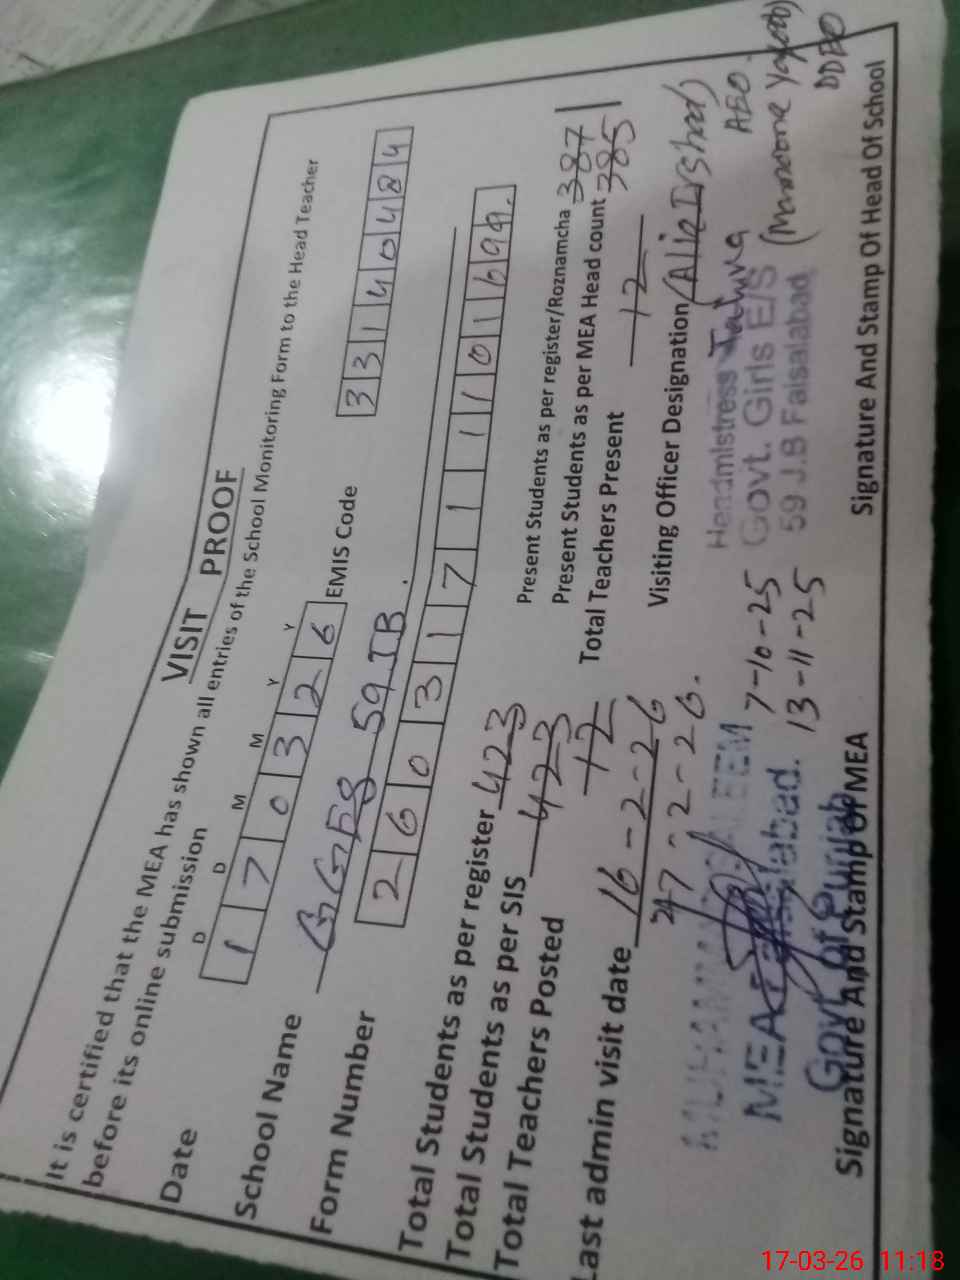 VISIT PROOF
It is certified that the MEA has shown all entries of the School Monitoring Form to the Head Teacher
before its online submission
D D M M Y Y
Date 1 7 0 3 2 6 EMIS Code 3 3 1 4 0 4 2 4
School Name 59 JB.
Form Number 2 6 0 3 1 7 1 1 1 0 1 6 9 9.
Total Students as per register 423 Present Students as per register/Roznamcha 387
Total Students as per SIS 423 Present Students as per MEA Head count 385
Total Teachers Posted 12 Total Teachers Present 12
Last admin visit date 16-2-26 Visiting Officer Designation (Alia Irshad) AEO.
27-2-26. 7-10-25 (Yaqoob) DDEO
13-11-25
MUHAMMAD SALEEM Headmistress
MEA Faisalabad. Govt. Girls E/S
Govt of Punjab 59 J.B Faisalabad
Signature And Stamp Of MEA Signature And Stamp Of Head Of School
17-03-26 11:18